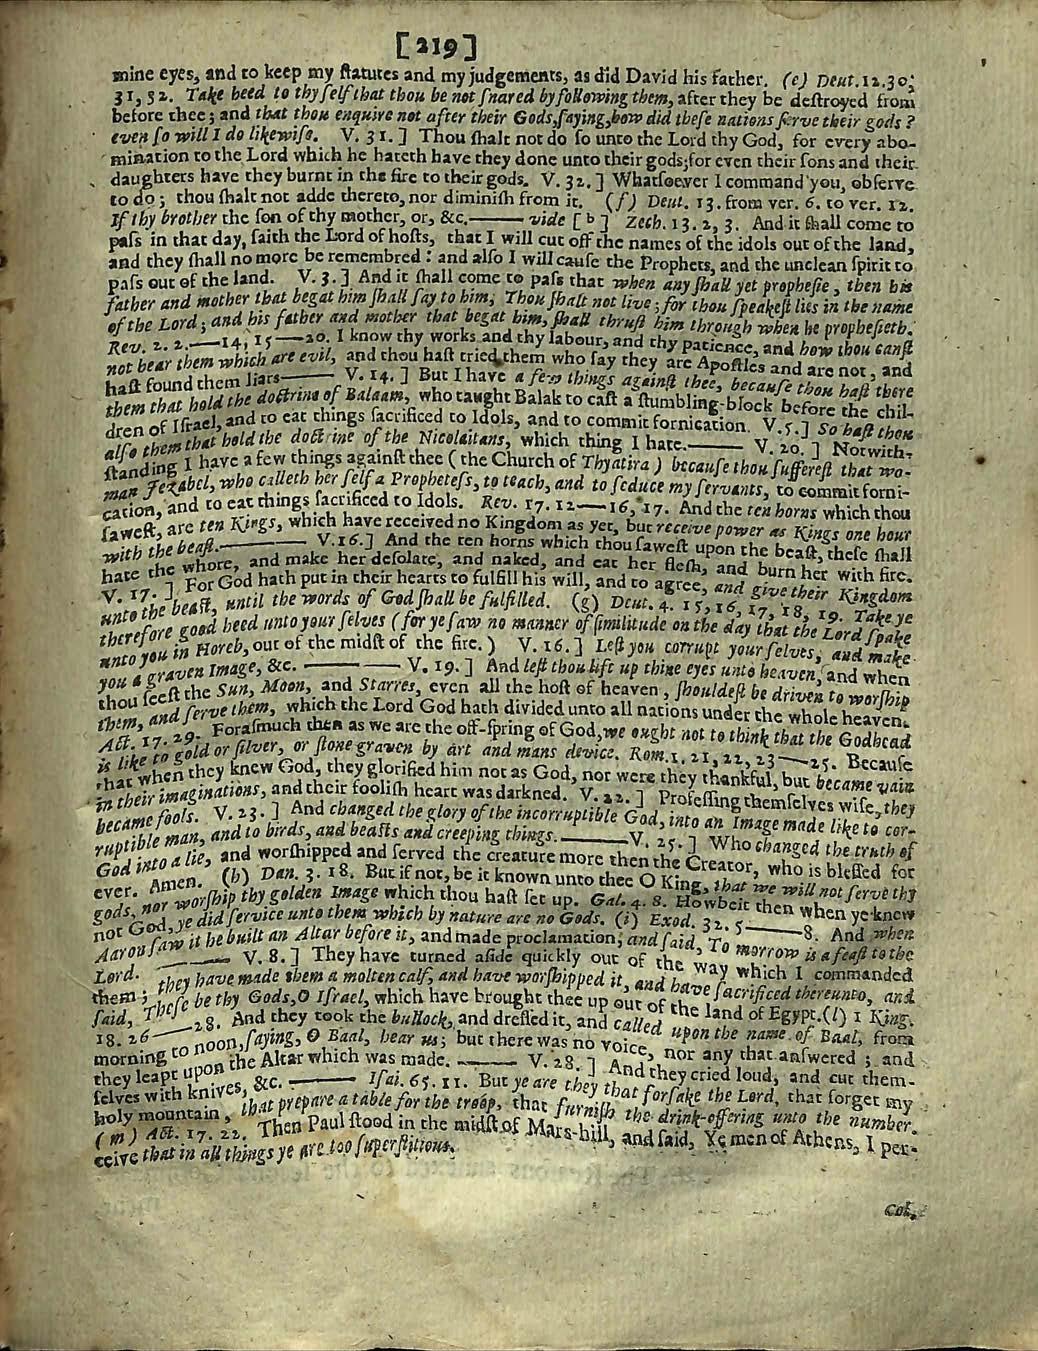 [219]
mine eyes, and to keep my ſtatutes and my judgements, as did David his father. (e) Deut. 12.30;
31, 32. Take heed to thy ſelf that thou be not ſnared by following them, after they be deſtroyed from
before thee; and that thou enquire not after their Gods, ſaying, how did theſe nations ſerve their gods?
even ſo will I do likewiſe. V. 31.] Thou ſhalt not do ſo unto the Lord thy God, for every abo-
mination to the Lord which he hateth have they done unto their gods; for even their ſons and their
daughters have they burnt in the fire to their gods. V. 32.] Whatſoever I command you, obſerve
to do; thou ſhalt not adde thereto, nor diminiſh from it. (f) Deut. 13. from ver. 6. to ver. 12.
If thy brother the ſon of thy mother, or, &c.—— vide [b] Zech. 13. 2, 3. And it ſhall come to
paſs in that day, ſaith the Lord of hoſts, that I will cut off the names of the idols out of the land,
and they ſhall no more be remembred: and alſo I will cauſe the Prophets, and the unclean ſpirit to
paſs out of the land. V. 3.] And it ſhall come to paſs that when any ſhall yet propheſie, then his
father and mother that begat him ſhall ſay to him, Thou ſhalt not live; for thou ſpeakeſt lies in the name
of the Lord; and his father and mother that begat him, ſhall thruſt him through when he propheſieth.
Rev. 2. 2.—14, 15—20. I know thy works and thy labour, and thy patience, and how thou canſt
not bear them which are evil, and thou haſt tried them who ſay they are Apoſtles and are not, and
haſt found them liars—— V. 14.] But I have a few things againſt thee, becauſe thou haſt there
them that hold the doctrine of Balaam, who taught Balak to caſt a ſtumbling-block before the chil-
dren of Iſrael, and to eat things ſacrificed to Idols, and to commit fornication. V. 5.] So haſt thou
alſo them that hold the doctrine of the Nicolaitans, which thing I hate.—— V. 20.] Notwith-
ſtanding I have a few things againſt thee (the Church of Thyatira) becauſe thou ſuffereſt that wo-
man Jezabel, who calleth her ſelf a Propheteſs, to teach, and to ſeduce my ſervants, to commit forni-
cation, and to eat things ſacrificed to Idols. Rev. 17. 12—16, 17. And the ten horns which thou
ſaweſt, are ten Kings, which have received no Kingdom as yet, but receive power as Kings one hour
with the beaſt.—— V. 16.] And the ten horns which thou ſaweſt upon the beaſt, theſe ſhall
hate the whore, and make her deſolate, and naked, and eat her fleſh, and burn her with fire.
V. 17.] For God hath put in their hearts to fulfill his will, and to agree, and give their Kingdom
unto the beaſt, until the words of God ſhall be fulfilled. (g) Deut. 4. 15, 16, 17, 18, 19. Take ye
therefore good heed unto your ſelves (for ye ſaw no manner of ſimilitude on the day that the Lord ſpake
unto you in Horeb, out of the midſt of the fire.) V. 16.] Leſt you corrupt your ſelves, and make
you a graven Image, &c. —— V. 19.] And leſt thou lift up thine eyes unto heaven, and when
thou ſeeſt the Sun, Moon, and Starres, even all the hoſt of heaven, ſhouldeſt be driven to worſhip
them, and ſerve them, which the Lord God hath divided unto all nations under the whole heaven.
Act. 17. 29. Foraſmuch then as we are the off-ſpring of God, we ought not to think that the Godhead
is like to gold or ſilver, or ſtone graven by art and mans device. Rom. 1. 21, 22, 23—25. Becauſe
that when they knew God, they glorified him not as God, nor were they thankful, but became vain
in their imaginations, and their fooliſh heart was darkned. V. 22.] Profeſſing themſelves wiſe, they
became fools. V. 23.] And changed the glory of the incorruptible God, into an Image made like to cor-
ruptible man, and to birds, and beaſts and creeping things.—— V. 25.] Who changed the truth of
God into a lie, and worſhipped and ſerved the creature more then the Creator, who is bleſſed for
ever. Amen. (h) Dan. 3. 18. But if not, be it known unto thee O King, that we will not ſerve thy
gods, nor worſhip thy golden Image which thou haſt ſet up. Gal. 4. 8. Howbeit then when ye knew
not God, ye did ſervice unto them which by nature are no Gods. (i) Exod. 32. 5——8. And when
Aaron ſaw it he built an Altar before it, and made proclamation, and ſaid, To morrow is a feaſt to the
Lord. —— V. 8.] They have turned aſide quickly out of the way which I commanded
them; they have made them a molten calf, and have worſhipped it, and have ſacrificed thereunto, and
ſaid, Theſe be thy Gods, O Iſrael, which have brought thee up out of the land of Egypt. (l) 1 King.
18. 26——28. And they took the bullock, and dreſſed it, and called upon the name of Baal, from
morning to noon, ſaying, O Baal, hear us; but there was no voice, nor any that anſwered; and
they leapt upon the Altar which was made. —— V. 28.] And they cried loud, and cut them-
ſelves with knives, &c. —— Iſai. 65. 11. But ye are they that forſake the Lord, that forget my
holy mountain, that prepare a table for the troop, that furniſh the drink-offering unto the number.
(m) Act. 17. 22. Then Paul ſtood in the midſt of Mars-hill, and ſaid, Ye men of Athens, I per-
ceive that in all things ye are too ſuperſtitious.
Col.